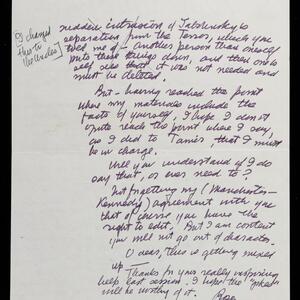 sudden intrusion of
separation from the Terror, which you
told me of – Another person than oneself
puts these things down, and then one's
self sees that it was not needed and
must be deleted.
But – having reached the point
where my materials include the
facts of yourself, I hope I don't
quite reach the point where I say,
as I did to James, that I must
be in charge.
Will you understand if I do
say that, or ever need to?
Not forgetting my (Manchester-
Kennedy) agreement with you
that of course you have the
right to edit. But I am content
you will not go out of character.
O dear, this is getting mixed
up –
Thanks for your really inspiring
help last session. I hope the
will be worthy of it. Rose
I changed
this to